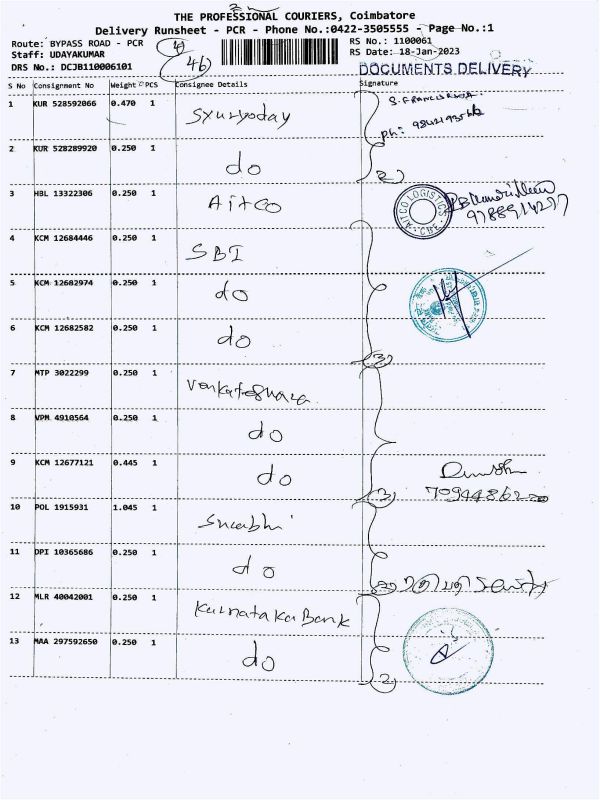 THE PROFESSIONAL COURIERS, Coimbatore
Delivery Runsheet - PCR - Phone No.:0422-3505555 - Page No.:1
Route: BYPASS ROAD - PCR
Staff: UDAYAKUMAR
DRS No.: DCJB110006101
46
RS No.: 1100061
RS Date: 18-Jan-2023
DOCUMENTS DELIVERY
S No Consignment No Weight PCS Consignee Details Signature
1 KUR 528592066 0.470 1 Syuryoday
Ph:
2 KUR 528289920 0.250 1 do 2
3 HBL 13322306 0.250 1 Aitco AITCO LOGISTICS CBE 9788914277
4 KCM 12684446 0.250 1 SBI
5 KCM 12682974 0.250 1 do
6 KCM 12682582 0.250 1 do 3
7 MTP 3022299 0.250 1 Venkateshara
8 VPM 4910564 0.250 1 do
9 KCM 12677121 0.445 1 do 3
10 POL 1915931 1.045 1
11 DPI 10365686 0.250 1 do
12 MLR 40042001 0.250 1 Karnataka Bank
13 MAA 297592650 0.250 1 do 2